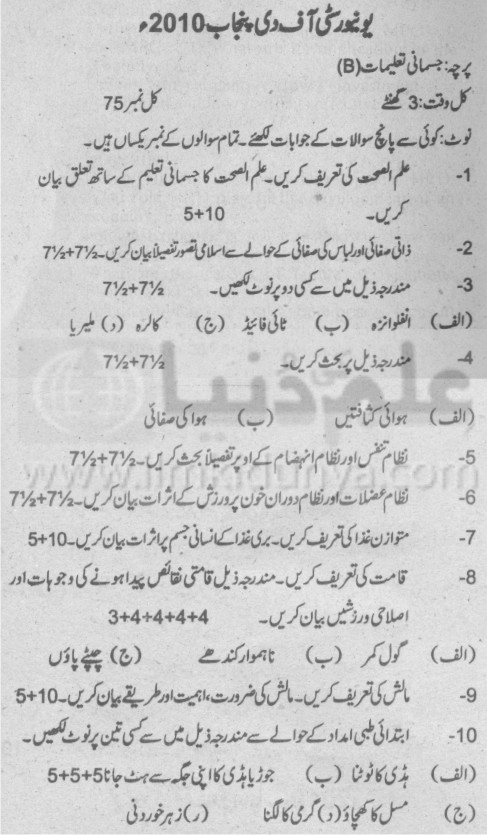 یونیورسٹی آف دی پنجاب 2010ء
پرچہ: جسمانی تعلیمات (B)
کل وقت: 3 گھنٹے کل نمبر 75
نوٹ: کوئی سے پانچ سوالات کے جوابات لکھئے۔ تمام سوالوں کے نمبر یکساں ہیں۔
1- علم الصحت کی تعریف کریں۔ علم الصحت کا جسمانی تعلیم کے ساتھ تعلق بیان
کریں۔ 5+10
2- ذاتی صفائی اور لباس کی صفائی کے حوالے سے اسلامی تصور تفصیلاً بیان کریں۔ 7½+7½
3- مندرجہ ذیل میں سے کسی دو پر نوٹ لکھیں۔ 7½+7½
(الف) انفلوانزہ (ب) ٹائی فائیڈ (ج) کالرہ (د) ملیریا
4- مندرجہ ذیل پر بحث کریں۔ 7½+7½
علم کی دنیا
(الف) ہوائی کثافتیں (ب) ہوا کی صفائی
5- نظام تنفس اور نظام انہضام کے اوپر تفصیلاً بحث کریں۔ 7½+7½
www.ilmkidunya.com
6- نظام عضلات اور نظام دوران خون پر ورزش کے اثرات بیان کریں۔ 7½+7½
7- متوازن غذا کی تعریف کریں۔ بری غذا کے انسانی جسم پر اثرات بیان کریں۔ 5+10
8- قامت کی تعریف کریں۔ مندرجہ ذیل قامتی نقائص پیدا ہونے کی وجوہات اور
اصلاحی ورزشیں بیان کریں۔ 3+4+4+4+4
(الف) گول کمر (ب) ناہموار کندھے (ج) چپٹے پاؤں
9- مالش کی تعریف کریں۔ مالش کی ضرورت، اہمیت اور طریقے بیان کریں۔ 5+10
10- ابتدائی طبی امداد کے حوالے سے مندرجہ ذیل میں سے کسی تین پر نوٹ لکھیں۔
(الف) ہڈی کا ٹوٹنا (ب) جوڑ یا ہڈی کا اپنی جگہ سے ہٹ جانا 5+5+5
(ج) مسل کا کھچاؤ (د) گرمی کا لگنا (ر) زہر خوردنی